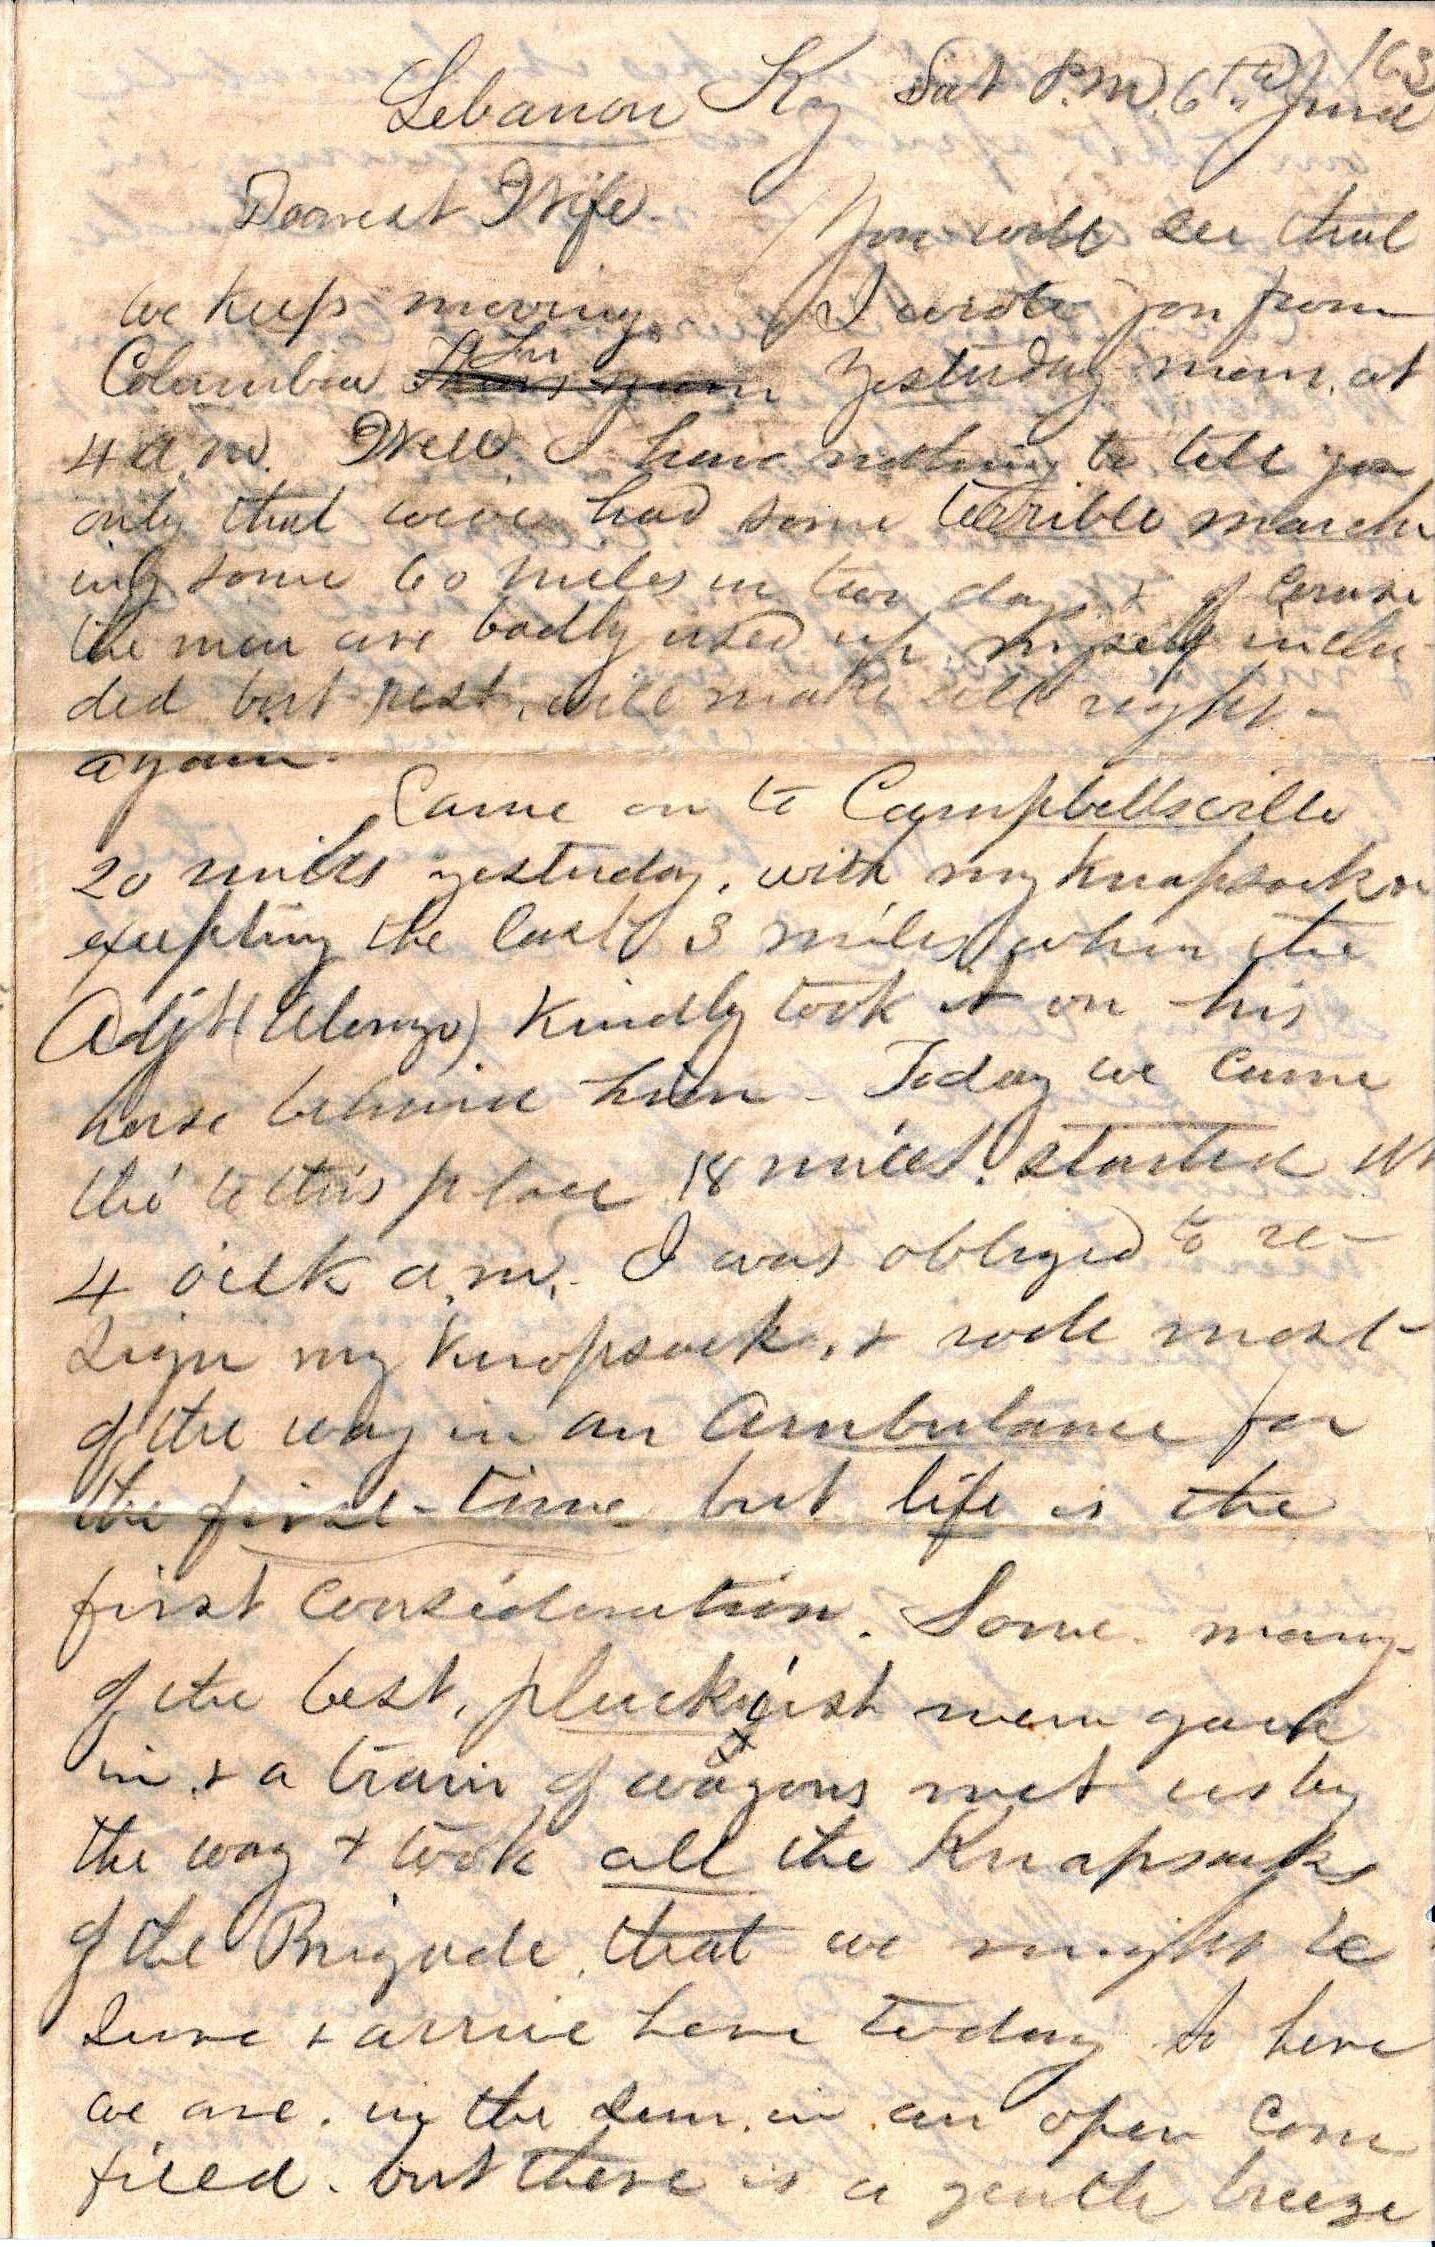 Lebanon Ky Sat P.M. 6th June /63
Dearest Wife You will see that
we keep moving. I wrote you from
Columbia yesterday morn. at
4 a.m. Well I have nothing to tell you
only that we've had some terrible march
ing some 60 miles in two days & of Course
the men are badly used up myself inclu-
ded but rest will make all right-
again.
Came on to Campbellsville
20 miles yesterday, with my Knapsack on
exepting the last 3 miles when the
Adj't (Alonzo) Kindly took it on his
horse behind him - Today we came
thro' to this place 18 miles. started
4 o'clk a.m. I was obliged to re-
sign my Knapsack, & rode most
of the way in an Ambulance for
the first-time but life is the
first Consideration. Some many
of the best, pluckyist men gave
in & a train of wagons met us by
the way & took all the Knapsacks
of the Brigade that we might be
sure & arrive here today so here
we are. in the sun. in an open Corn
filed. but there is a gentle breeze